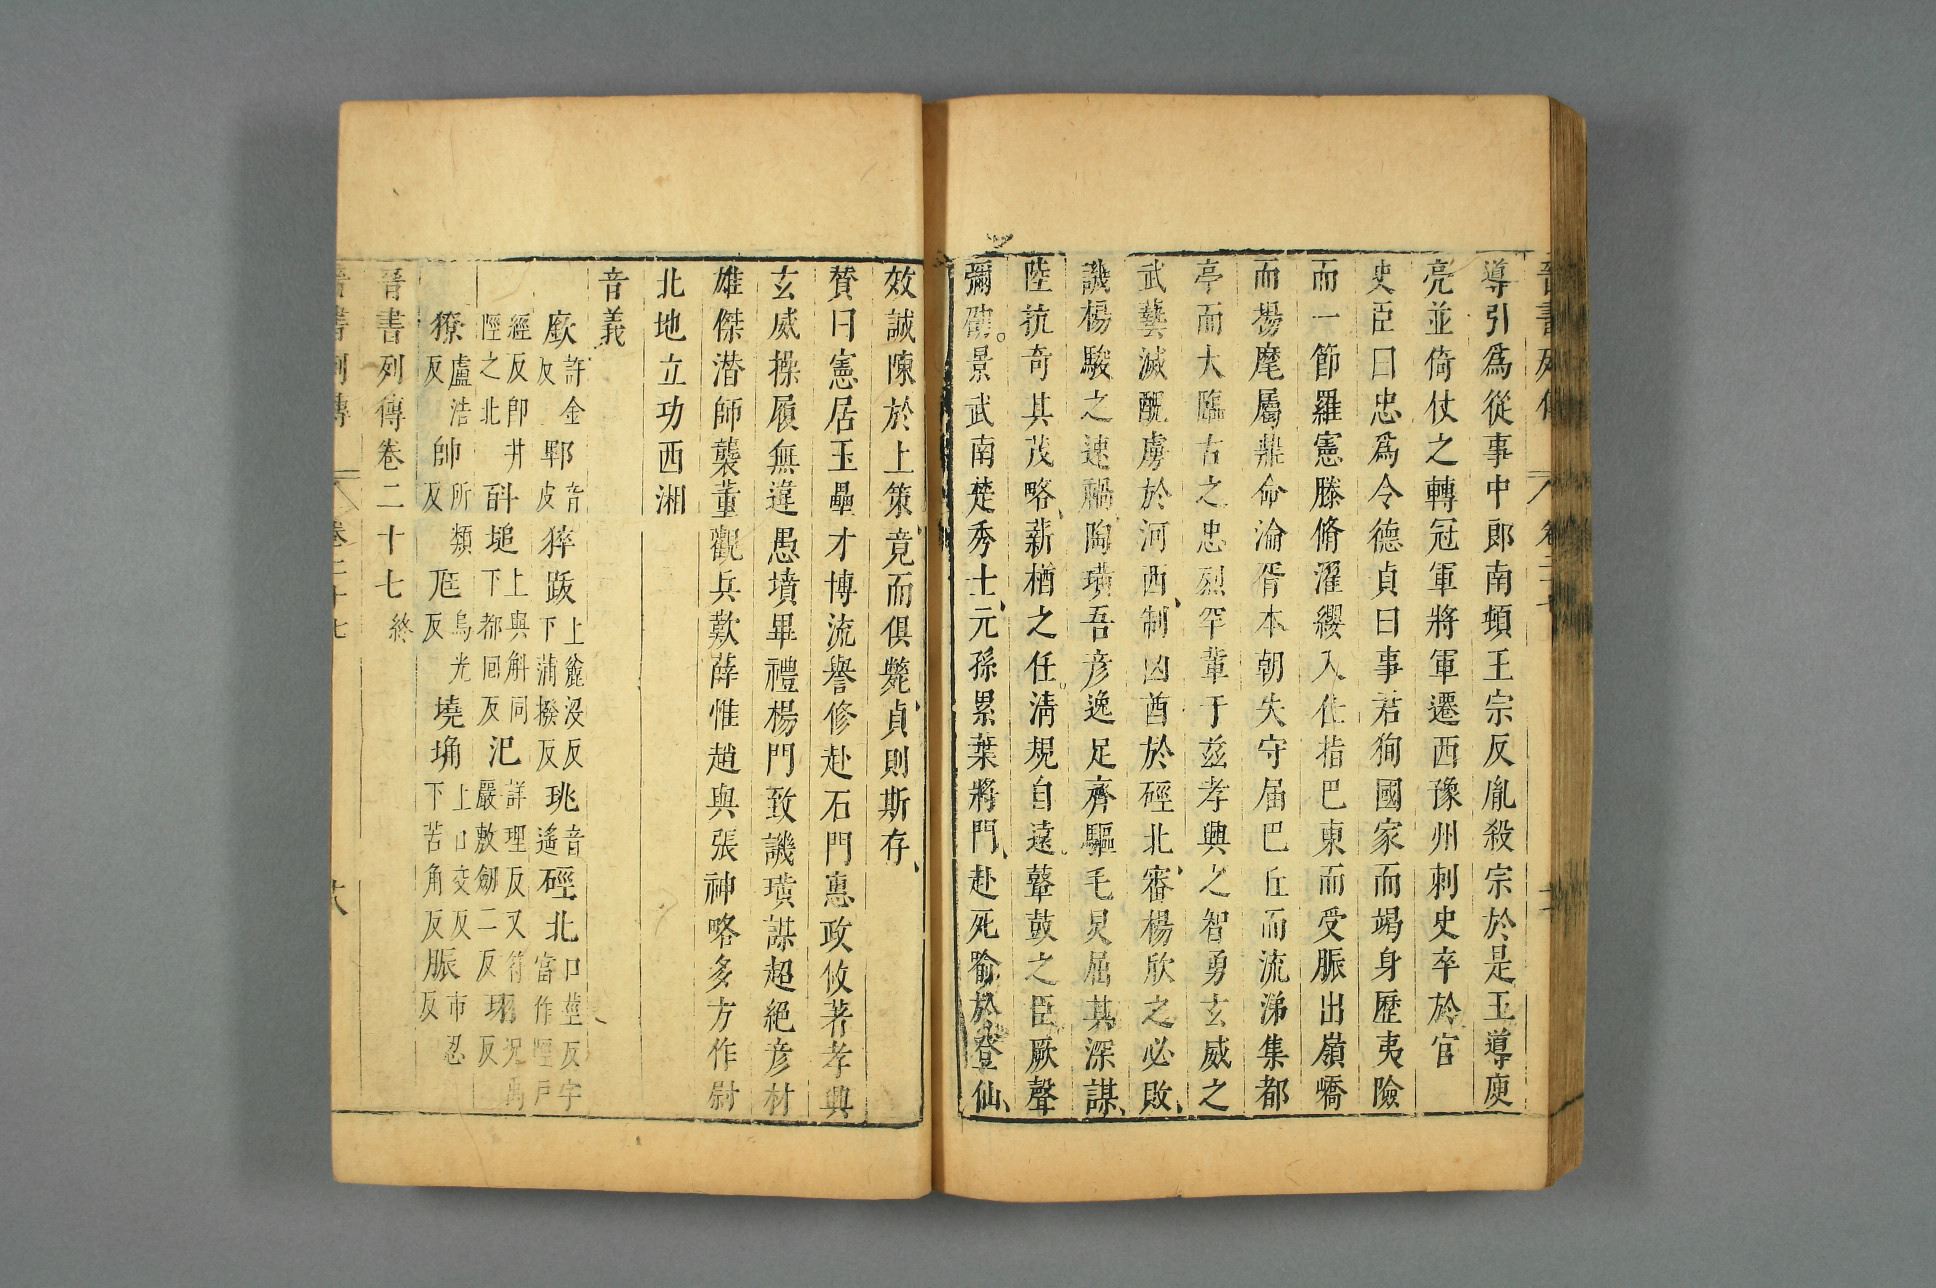 晉書列傳 卷二十七
導引爲從事中郎南頓王宗反胤殺宗於是王導庾
亮並倚仗之轉冠軍將軍遷西豫州刺史卒於官
史臣曰忠爲令德貞曰事君狥國家而竭身歷夷險
而一節羅憲滕脩濯纓入仕指巴東而受脤出嶺嶠
而揚麾屬鼎命淪胥本朝失守届巴丘而流涕集都
亭而大臨古之忠烈罕輩于兹孝興之智勇玄威之
武藝滅醜虜於河西制凶酋於硜北審楊欣之必敗
譏楊駿之速禍陶璜吾彦逸足齊驅毛炅屈其深謀
陸抗奇其茂略薪槱之任清規自遠鼙鼓之臣厥聲
彌劭景武南楚秀士元孫累葉將門赴死喻於登仙
效誠陳於上策竟而俱斃貞則斯存
贊曰憲居玉壘才博流譽修赴石門惠政攸著孝興
玄威操履無違愚墳畢禮楊門致譏璜謀超絶彦材
雄傑潜師襲董觀兵歎薛惟趙與張神略多方作尉
北地立功西湘
音義
廞許金反 郫音皮 猝跋上麄没反下蒲撥反 珧音遙 硜北口莖反字當作陘戶
經反即井陘之北 㪷塠上與斛同下都回反 汜詳理反又符嚴敷劒二反 珝況禹反
獠盧浩反 帥所類反 尫烏光反 墝埆上口交反下苦角反 脤市忍反
晉書列傳卷二十七 終
晉書列傳 卷二十七 十八